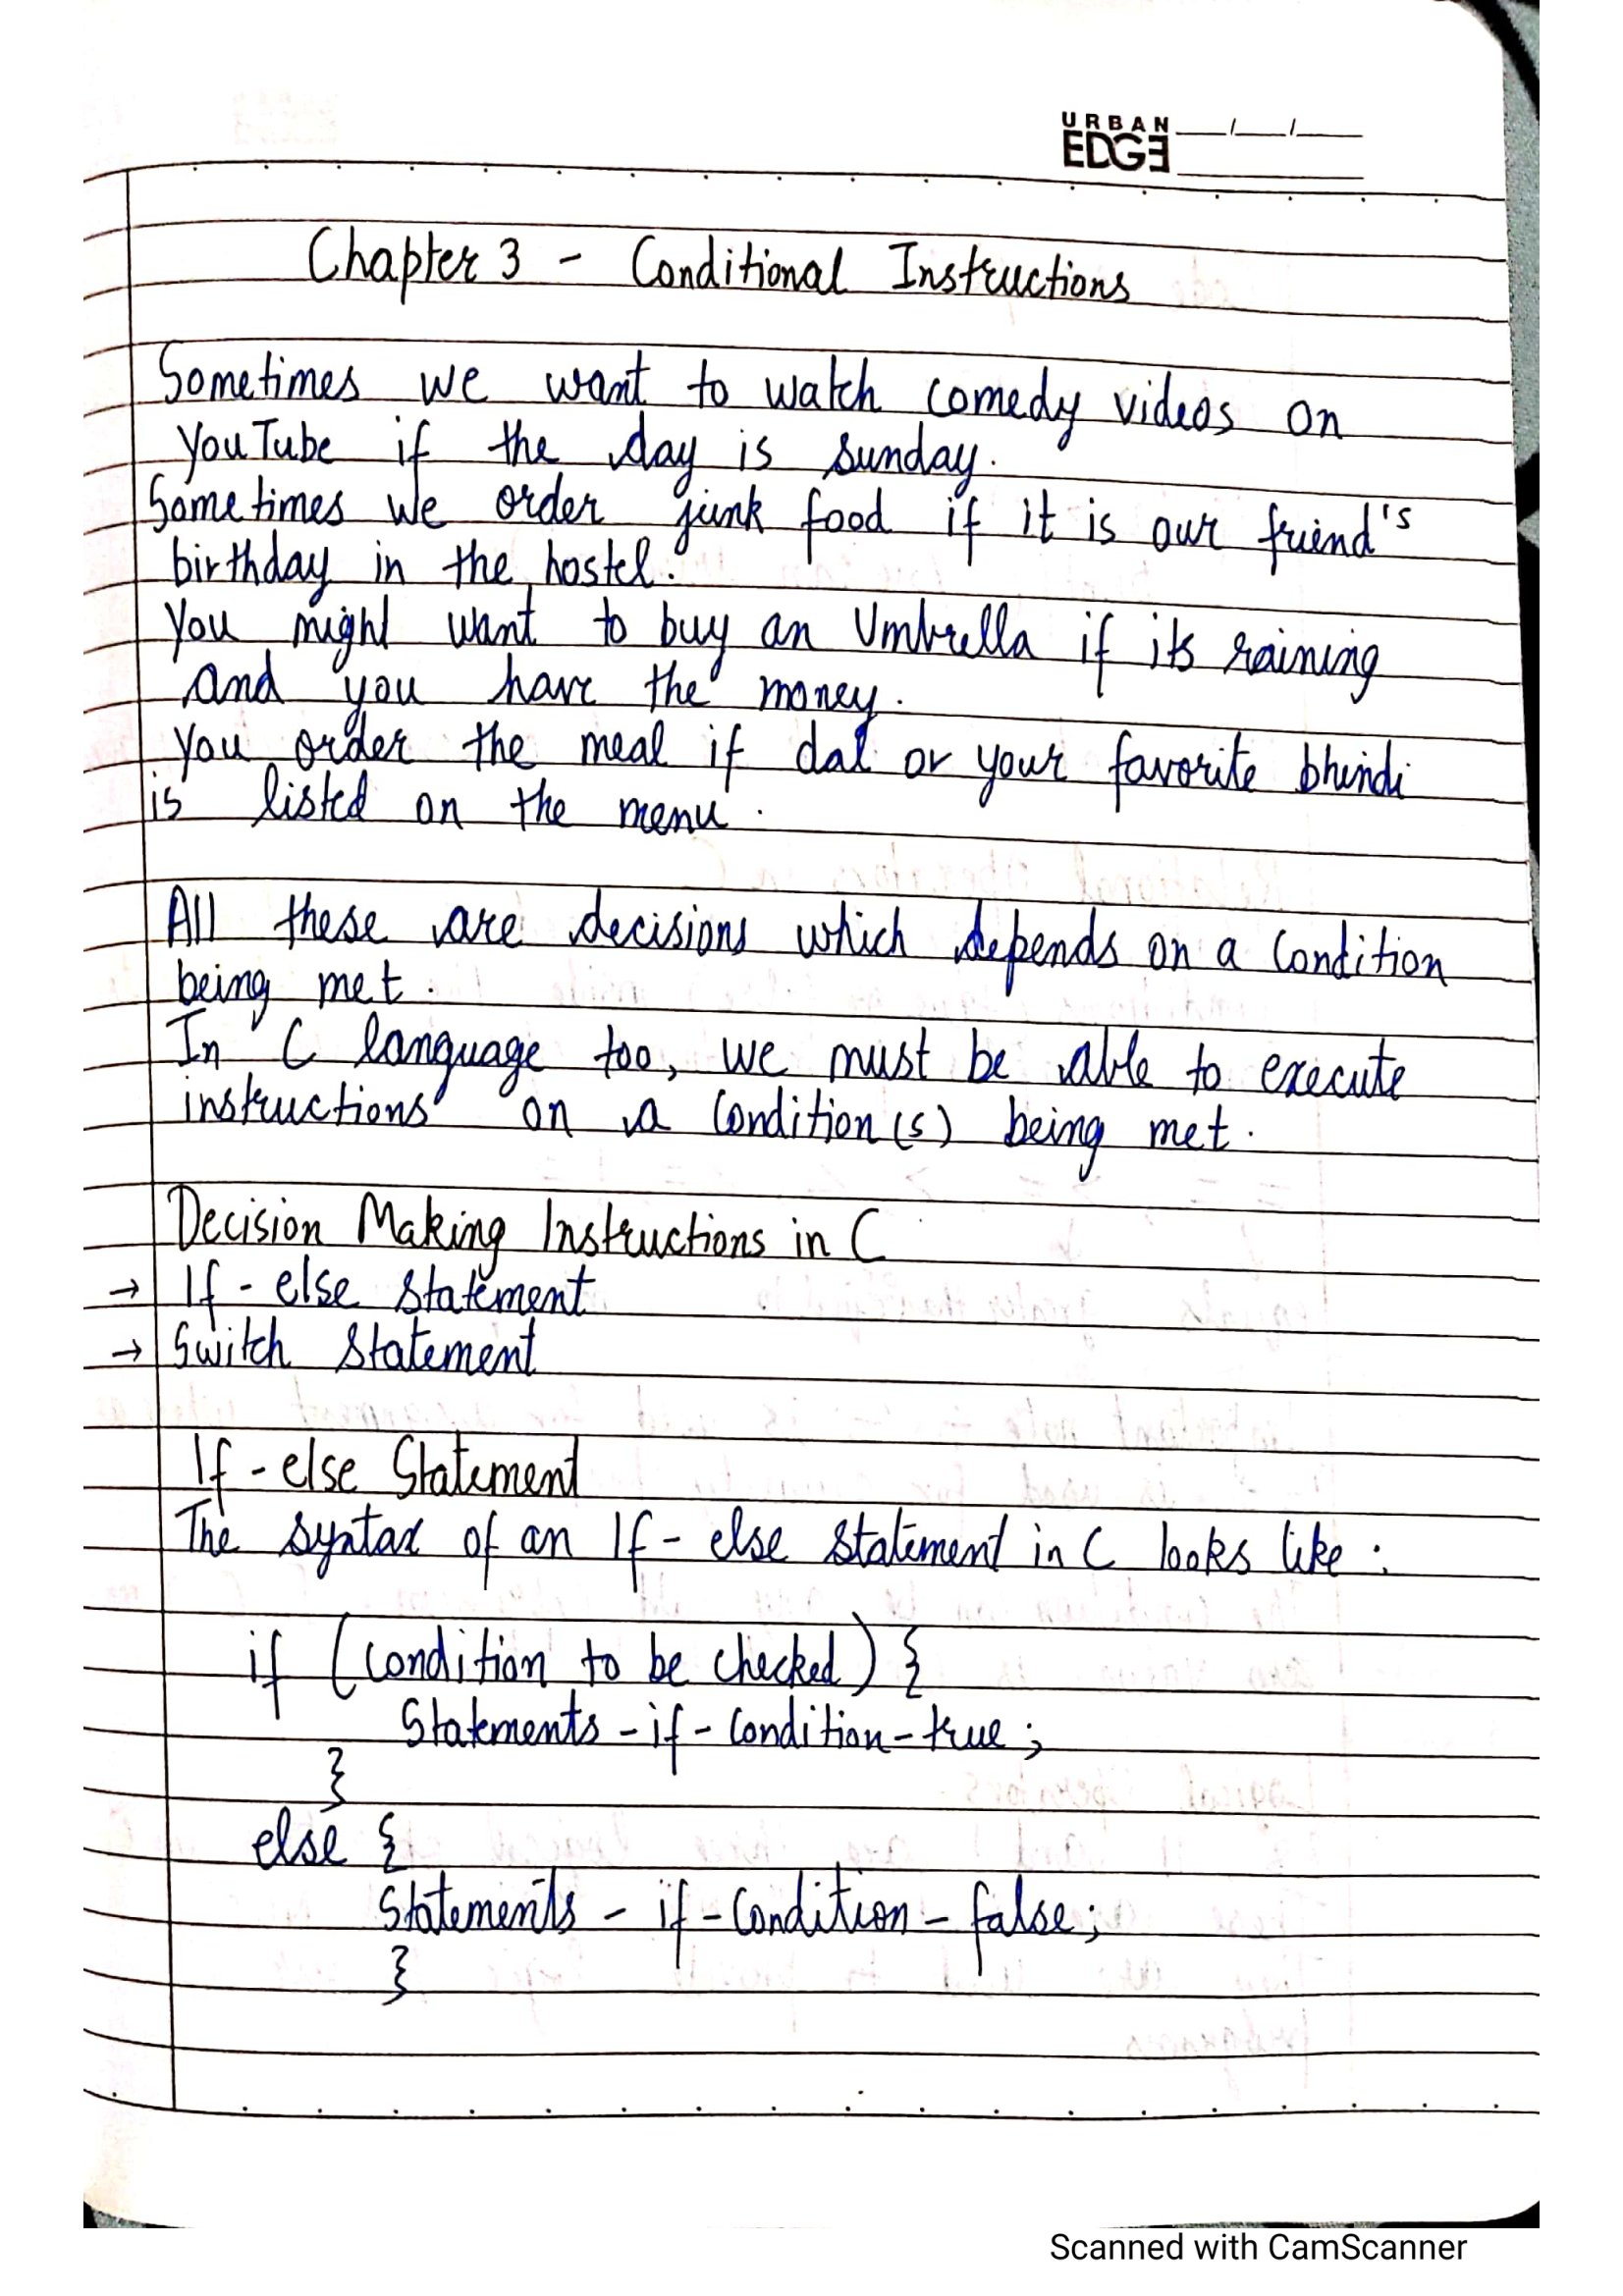 URBAN
EDGE
Chapter 3 - Conditional Instructions
Sometimes we want to watch comedy videos on
YouTube if the day is sunday.
Sometimes we order junk food if it is our friend's
birthday in the hostel.
You might want to buy an Umbrella if its raining
and you have the money.
You order the meal if dal or your favorite bhindi
is listed on the menu.
All these are decisions which depends on a condition
being met.
In C language too, we must be able to execute
instructions on a condition(s) being met.
Decision Making Instructions in C
→ If - else statement
→ Switch statement
If - else Statement
The syntax of an If - else statement in C looks like:
if (condition to be checked) {
Statements - if - condition - true;
}
else {
Statements - if - condition - false;
}
Scanned with CamScanner